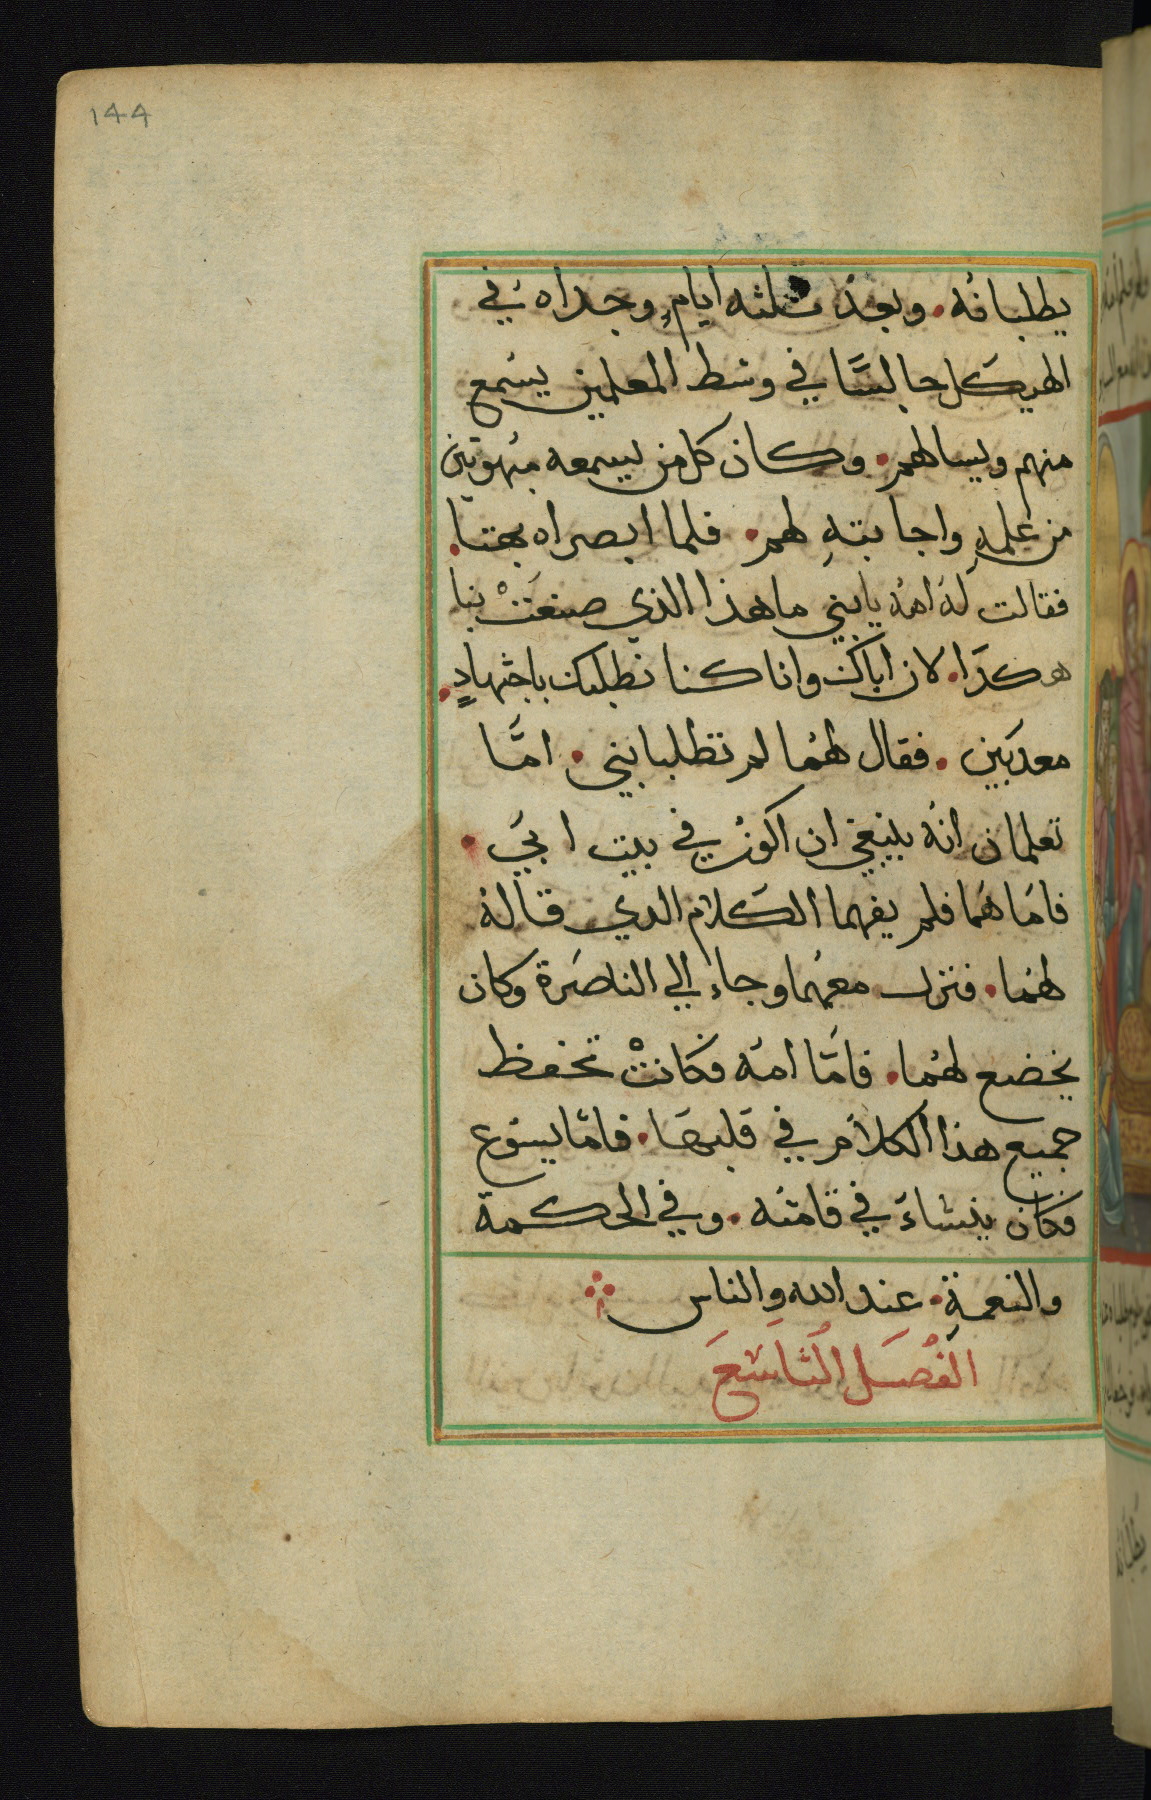 144
يطلبانه. وبعد ثلثه ايامٍ وجداه في
الهيكل جالسًا في وسط المعلمين يسمع
منهم ويسالهم. وكان كل من يسمعه مبهوتين
من علمهِ واجابتهِ لهم. فلما ابصراه بهتا.
فقالت له امه يابني ماهذا الذي صنعتْ بنا
هكدَا. لان اباك وانا كنا نطلبك باجتهادٍ.
معدبين. فقال لهُما لم تطلبانني. امَّا
تعلمان انهُ ينبغي ان اكونُ في بيت ابي.
فامَا هَما فلم يفهما الكلام الدي قاله
لهُما. فنزل معهُما وجاء الي الناصَرة وكان
يخضع لهُما. فامَّا امَه فكانتْ تحفظ
جميع هذا الكلام في قلبهَا. فامَّا يسَوع
فكان ينشاءَ في قامتُه. وفي الحكمة
والنعمةِ. عند الله والناس
الفُصَل اُلتاسَعَ